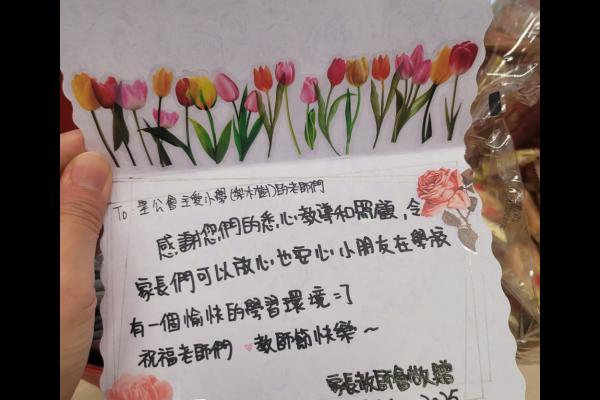 To: 聖公會主愛小學(梨木樹)的老師們
感謝您們的悉心教導和照顧,令
家長們可以放心也安心小朋友在學校
有一個愉快的學習環境=]
祝福老師們 教師節快樂~
家長教師會敬贈
2025